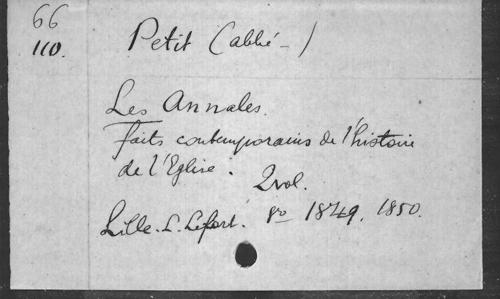 66
110.
Petit (abbé -)
Les Annales.
faits contemporains de l'histoire
de l'Eglise. 2 vol.
Lille. L. Lefort. 8o 1849, 1850.